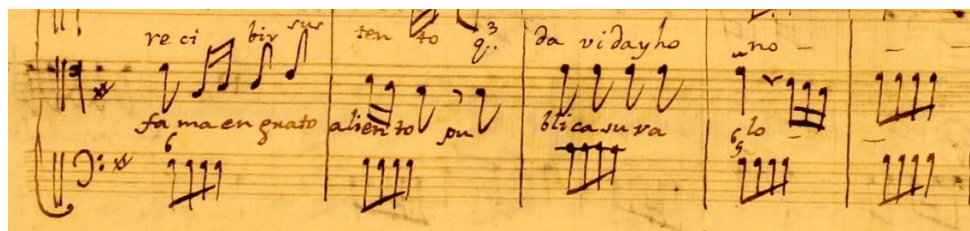 re ci bir sus ten to q. da vi da y ho no
fa ma en grato aliento pu blica su va lo
6 6 5